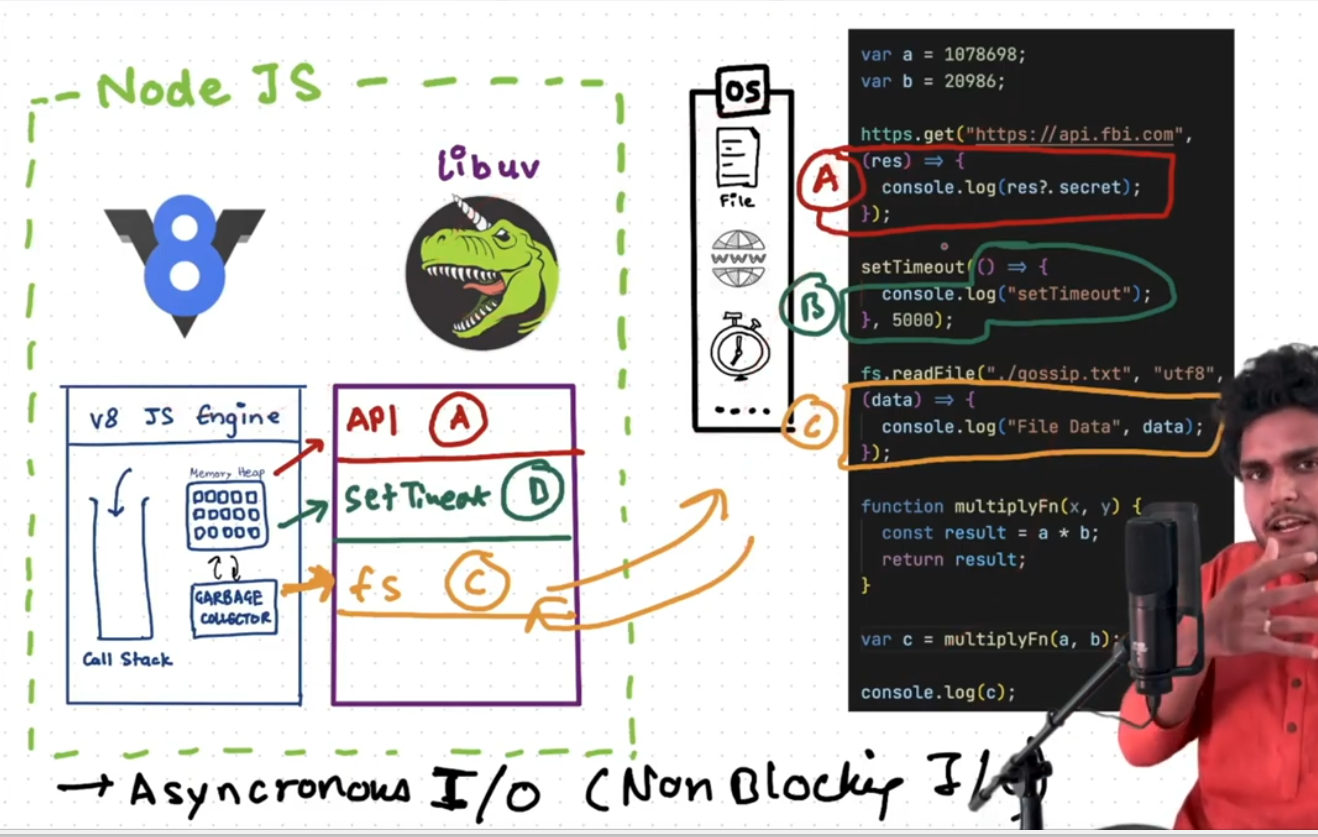 Node JS
libuv
V8 JS Engine
Memory Heap
GARBAGE
COLLECTOR
Call Stack
API A
SetTimeout B
fs C
OS
File
WWW
A
B
C
var a = 1078698;
var b = 20986;
https.get("https://api.fbi.com",
(res) => {
console.log(res?.secret);
});
setTimeout(() => {
console.log("setTimeout");
}, 5000);
fs.readFile("./gossip.txt", "utf8",
(data) => {
console.log("File Data", data);
});
function multiplyFn(x, y) {
const result = a * b;
return result;
}
var c = multiplyFn(a, b);
console.log(c);
→ Asyncronous I/O (Non Blocking I/O)